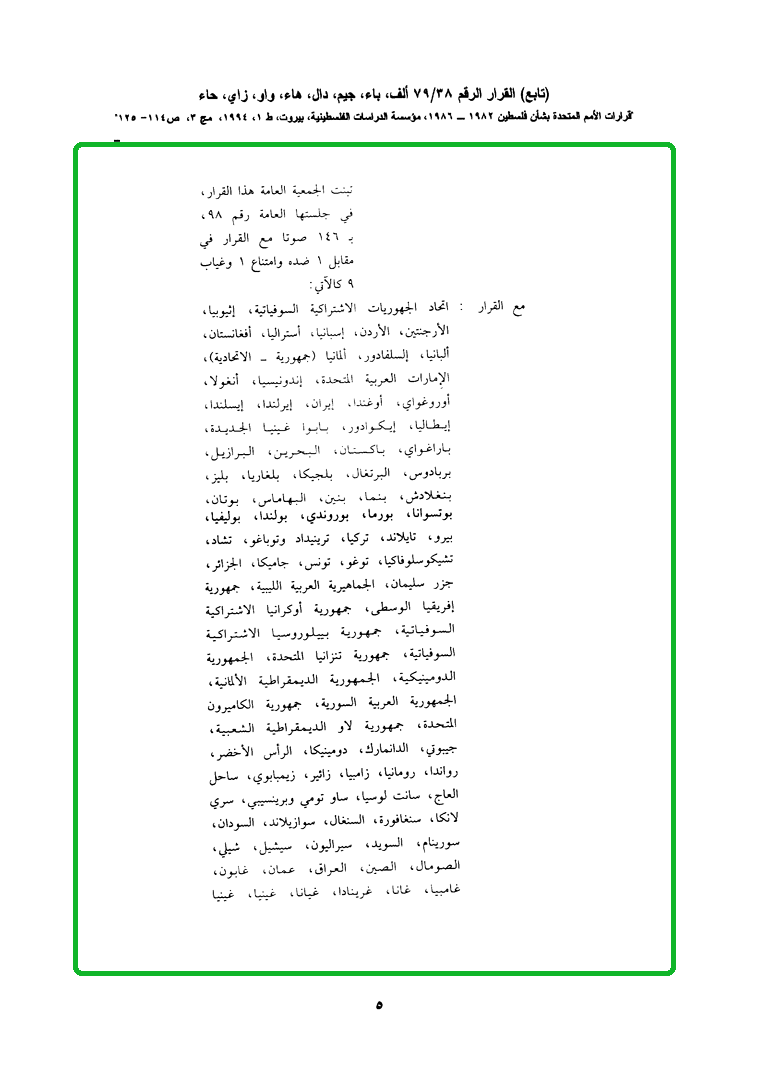 (تابع) القرار الرقم ٧٩/٣٨ ألف، باء، جيم، دال، هاء، واو، زاي، حاء
"قرارات الأمم المتحدة بشأن فلسطين ١٩٨٢ ــ ١٩٨٦، مؤسسة الدراسات الفلسطينية، بيروت، ط ١، ١٩٩٤، مج ٣، ص١١٤- ١٢٥"
تبنت الجمعية العامة هذا القرار،
في جلستها العامة رقم ٩٨،
بـ ١٤٦ صوتا مع القرار في
مقابل ١ ضده وامتناع ١ وغياب
٩ كالآتي:
مع القرار : اتحاد الجهوريات الاشتراكية السوفياتية، إثيوبيا،
الأرجنتين، الأردن، إسبانيا، أستراليا، أفغانستان،
ألبانيا، إلسلفادور، ألمانيا (جمهورية ــ الاتحادية)،
الإمارات العربية المتحدة، إندونيسيا، أنغولا،
أوروغواي، أوغندا، إيران، إيرلندا، إيسلندا،
إيطاليا، إيكوادور، بابوا غينيا الجديدة،
باراغواي، باكستان، البحرين، البرازيل،
بربادوس، البرتغال، بلجيكا، بلغاريا، بليز،
بنغلادش، بنما، بنين، البهاماس، بوتان،
بوتسوانا، بورما، بوروندي، بولندا، بوليفيا،
بيرو، تايلاند، تركيا، ترينيداد وتوباغو، تشاد،
تشيكوسلوفاكيا، توغو، تونس، جاميكا، الجزائر،
جزر سليمان، الجماهيرية العربية الليبية، جمهورية
إفريقيا الوسطى، جمهورية أوكرانيا الاشتراكية
السوفياتية، جمهورية بييلوروسيا الاشتراكية
السوفياتية، جمهورية تنزانيا المتحدة، الجمهورية
الدومينيكية، الجمهورية الديمقراطية الألمانية،
الجمهورية العربية السورية، جمهورية الكاميرون
المتحدة، جمهورية لاو الديمقراطية الشعبية،
جيبوتي، الدانمارك، دومينيكا، الرأس الأخضر،
رواندا، رومانيا، زامبيا، زائير، زيمبابوي، ساحل
العاج، سانت لوسيا، ساو تومي وبرينسيبي، سري
لانكا، سنغافورة، السنغال، سوازيلاند، السودان،
سورينام، السويد، سيراليون، سيشيل، شيلي،
الصومال، الصين، العراق، عمان، غابون،
غامبيا، غانا، غرينادا، غيانا، غينيا، غينيا
٥